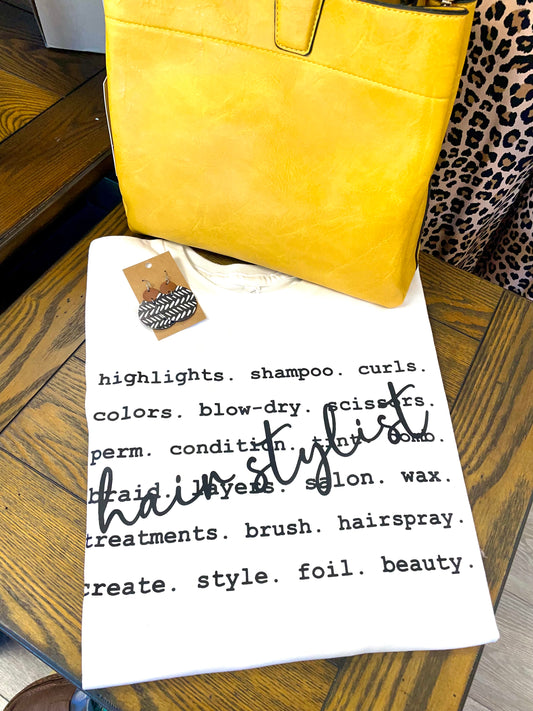 highlights. shampoo. curls.
colors. blow-dry. scissors.
perm. condition. tint. bomb.
braid. layers. salon. wax.
hairstylist
treatments. brush. hairspray.
create. style. foil. beauty.